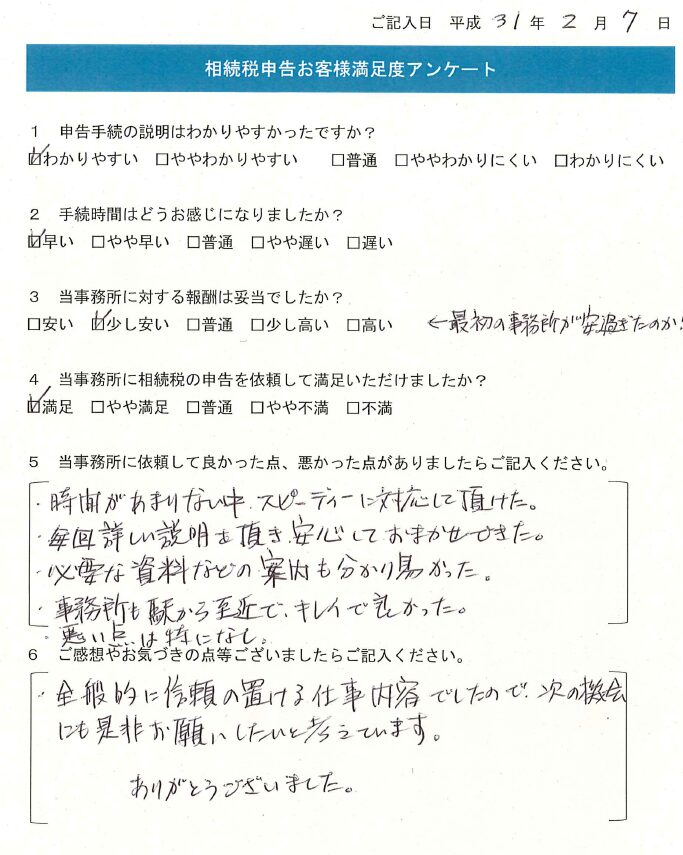 ご記入日 平成 31 年 2 月 7 日
相続税申告お客様満足度アンケート
1 申告手続の説明はわかりやすかったですか？
☑わかりやすい □ややわかりやすい □普通 □ややわかりにくい □わかりにくい
2 手続時間はどうお感じになりましたか？
☑早い □やや早い □普通 □やや遅い □遅い
3 当事務所に対する報酬は妥当でしたか？
□安い ☑少し安い □普通 □少し高い □高い ←最初の事務所が安過ぎたのか!
4 当事務所に相続税の申告を依頼して満足いただけましたか？
☑満足 □やや満足 □普通 □やや不満 □不満
5 当事務所に依頼して良かった点、悪かった点がありましたらご記入ください。
・時間があまりない中、スピーディーに対応して頂けた。
・毎回詳しい説明を頂き、安心しておまかせできた。
・必要な資料などの案内も分かり易かった。
・事務所も駅から至近で、キレイで良かった。
・悪い点は特になし。
6 ご感想やお気づきの点等ございましたらご記入ください。
・全般的に信頼の置ける仕事内容でしたので、次の機会
にも是非お願いしたいと考えています。
ありがとうございました。